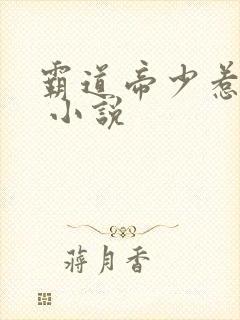 霸道帝少惹
小說
蔣月香